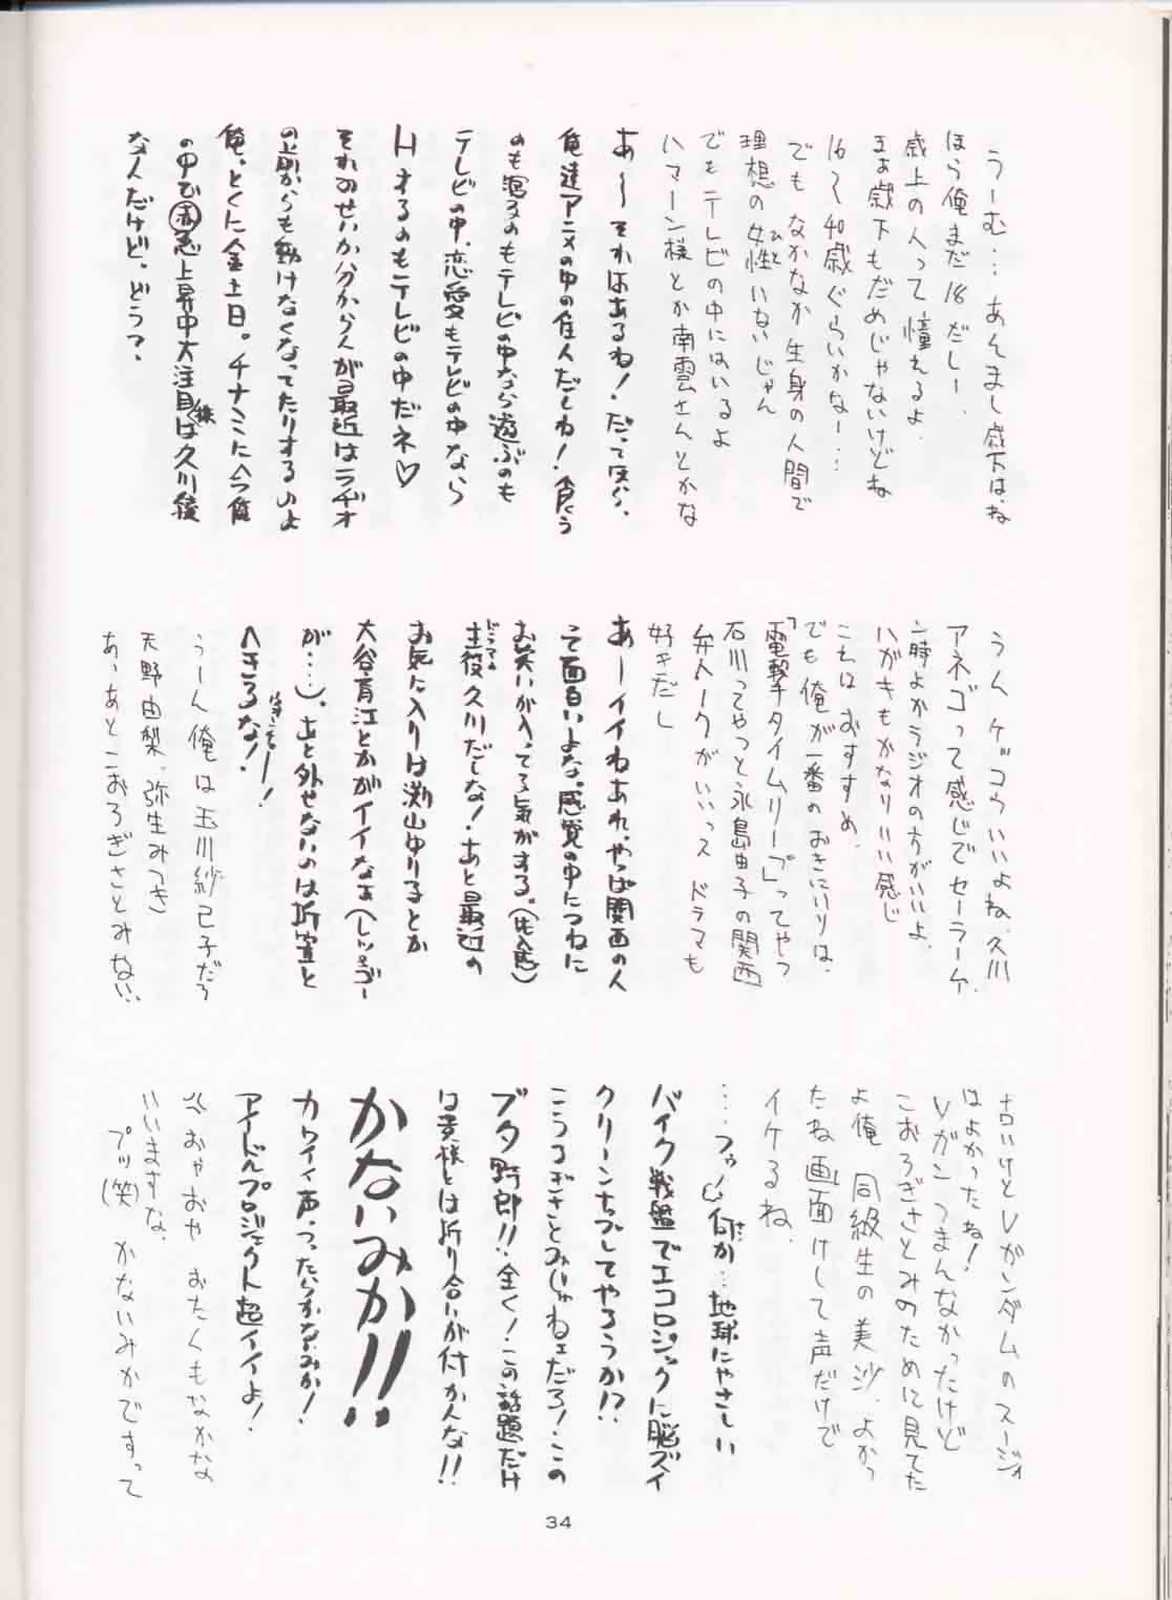 うーむ…あんまし歳下はね
ほら俺まだ18だしー、
歳上の人って憧れるよ
まぁ歳下もだめじゃないけどね
16〜40歳ぐらいかなー…
でもなかなか生身の人間で
理想の女性いないじゃん
でもテレビの中にはいるよ
ハマーン様とか南雲さんとかな
あ〜〜それはあるね!だって
俺達アニメの中の住人だしね!食う
のも寝るのもテレビの中なら遊ぶのも
テレビの中、恋愛もテレビの中なら
HするのもテレビのⅠ中だネ♡
それのせいか分からんが最近はラヂオ
の前からも動けなくなってたりするのよ
俺。とくに金土日。チナミに今俺
の中で赤丸急上昇中大注目株は久川綾
なんだけど、どう?
うん ケッコウいいよね、久川
アネゴって感じでセーラームーン
ン時よかラジオの方がいいよ
ハガキもかなりいい感じ
これはおすすめ。
でも俺が一番のおきにいりは、
「電撃タイムリープ」ってやつ
石川ってやつと永島由子の関西
弁トークがいいっス ドラマも
好きだし
あーイイねあれ、やっぱ関西の人
って面白いよな。感覚の中につねに
お笑いが入ってる気がする。
主役久川だしな!あと最近の
お気に入りは渕山ゆり子とか
大谷育江とかがイイなぁ(レッツゴー
が…)。あと外せないのは折笠と
へきるな!
うーん俺は玉川紗己子だろ
天野由梨、弥生みつき
あ、あとこおろぎさとみなぃ
古いけどVガンダムのスージィ
はよかったね!
Vガンつまんなかったけど
こおろぎさとみのために見てた
よ俺 同級生の美沙、よかっ
たね 画面けして声だけで
イケるね、
…フゥ!何が…地球にやさしい
バイク戦艦でエコロジックに脳ズイ
クリーンナップしてやろうか!?
こうろぎさとみじゃねェだろ!この
ブタ野郎!!全く!この話題だけ
は貴様とは折り合いが付かんな!!
かないみか!!
カワイイ声つったらかないみか!
アイドルプロジェクト超イイよ!
おやおや おたくもなかな
いいますな、
プッ(笑) かないみかですって
34